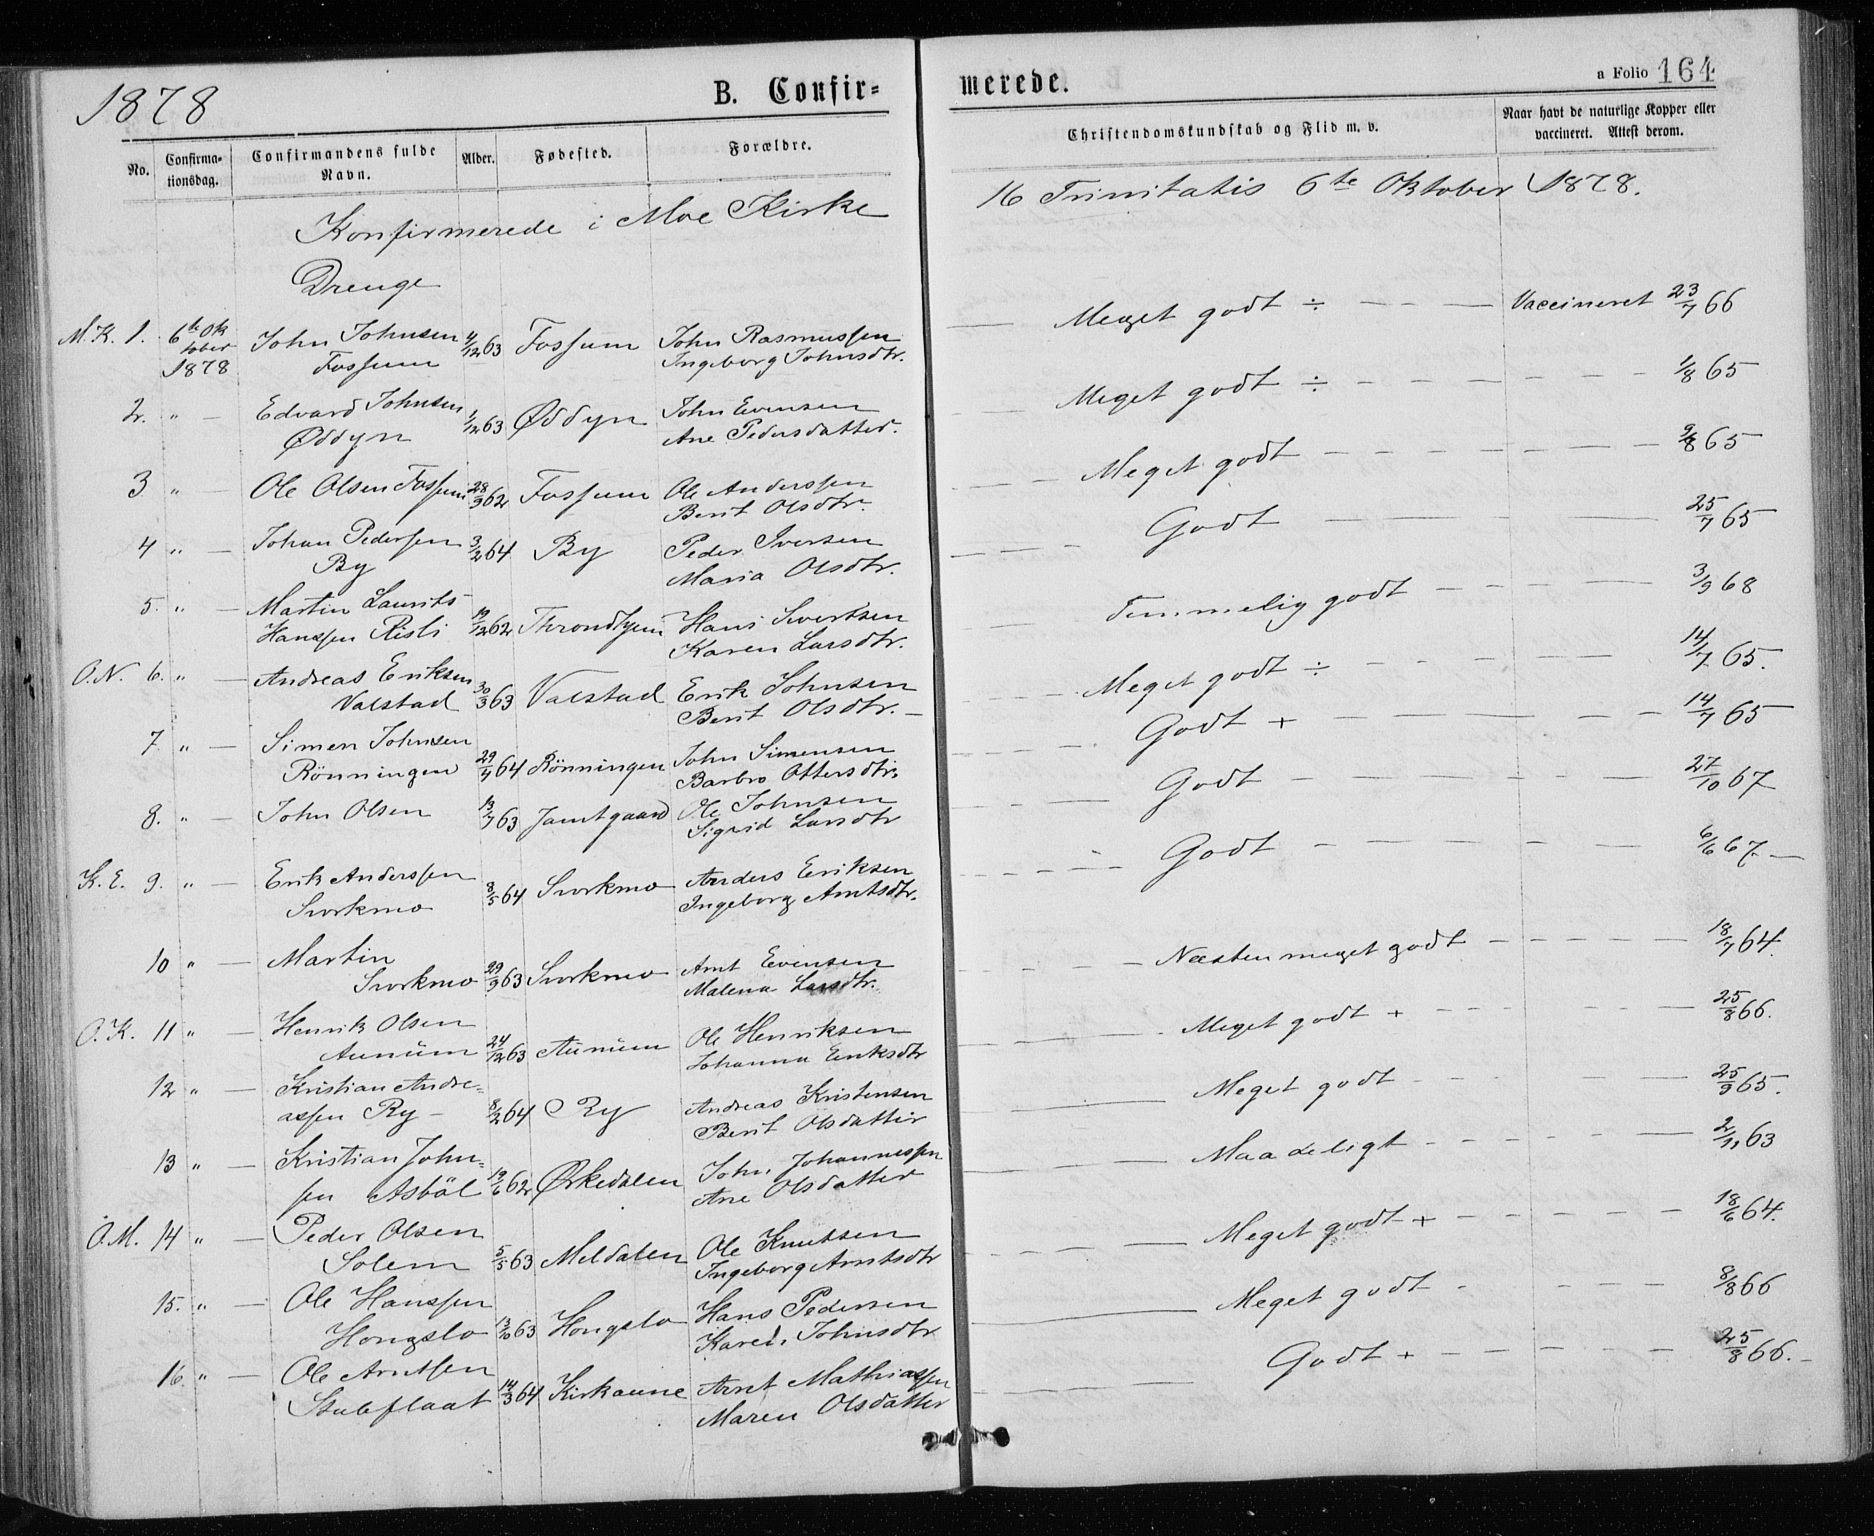 1878
B. Confir=
merede.
a Folio 164
No.
Confirma-
tionsdag.
Confirmandens fulde
Navn.
Alder.
Fødested.
Forældre.
Christendomskundskab og Flid m. v.
Naar havt de naturlige Kopper eller
vaccineret. Attest derom.
Konfirmerede i Moe Kirke
16 Trinitatis 6te Oktober 1878.
Drenge
M.K. 1. 6te Ok John Johnsen 4/12 63 Fossum John Rasmussen Meget godt ÷ Vaccineret 23/7 66
tober Fossum Ingeborg Johnsdtr.
1878
2. " Edvard Johnsen 1/12 63 Øddyn John Evensen Meget godt ÷ 1/8 65
Øddyn Ane Pedersdatter.
3 " Ole Olsen Fossum 28/9 62 Fossum Ole Anderssen Meget godt 9/8 65
Berit Olsdtr.
4 " Johan Pederssen 3/2 64 By Peder Iversen Godt 25/7 65
By Maria Olsdtr.
5. " Martin Laurits 19/12 62 Throndhjem Hans Sivertsen Temmelig godt 3/9 68
Hanssen Risli Karen Larsdtr.
O.N. 6. " Andreas Eriksen 30/3 63 Valstad Erik Johnsen Meget godt ÷ 14/7 65.
Valstad Berit Olsdtr.
7 " Simen Johnsen 29/4 64 Rönningen John Simensen Godt + 14/7 65
Rönningen Barbro Ottersdtr.
8. " John Olsen 13/7 63 Jamtgaard Ole Johnsen Godt 27/10 67
Sigrid Larsdtr
K.E. 9. " Erik Anderssen 8/5 64 Svorkmo Anders Eriksen Godt 6/6 67.
Svorkmo Ingeborg Arntsdtr.
10 " Martin 29/9 63 Svorkmo Arnt Evensen Næsten meget godt 18/7 64.
Svorkmo Malena Larsdtr.
O.K. 11 " Henrik Olsen 24/12 63 Aunüm Ole Henriksen Meget godt + 25/8 66.
Aunüm Johanna Eriksdtr
12 " Kristian Andre= 8/2 64 Ry Andreas Kristensen Meget godt 25/9 65.
assen Ry Berit Olsdatter
13 " Kristian John= 19/6 62 Ørkedalen John Johannessen Maadeligt 2/11 63
sen Asböl Ane Olsdatter
O.M. 14 " Peder Olsen 5/5 63 Meldalen Ole Knutsen Meget godt + 18/6 64.
Solem Ingeborg Arntsdtr
15. " Ole Hanssen 13/10 63 Hongslo Hans Pedersen Meget godt 8/8 66
Hongslo Karen Johnsdtr
16. " Ole Arntsen 14/3 64 Kirkaune Arnt Mathiassen Godt + 25/8 66.
Stubflaat Maren Olsdatter